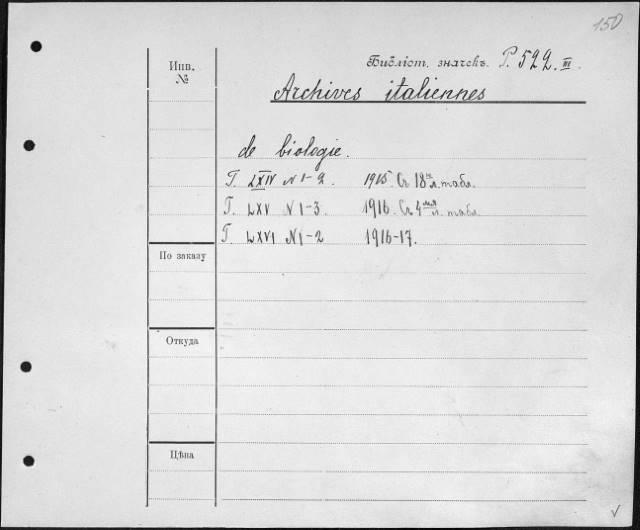 150
Инв. №
Библіот. значекъ. P. 522. III.
Archives italiennes
de biologie.
T. LXIV N 1-2 1915. Съ 18ю л. табл.
T. LXV N 1-3 1916. Съ 4мя л. табл.
T. LXVI N 1-2 1916-17.
По заказу
Откуда
Цѣна